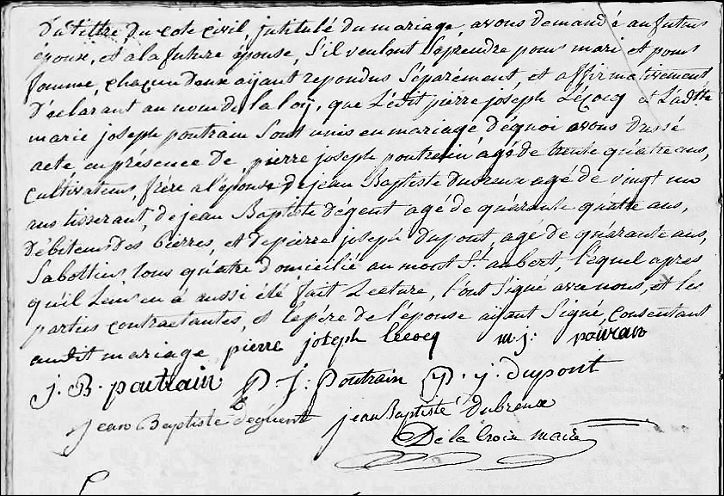 du tittre du code civil, jntitulé du mariage, avons demandé au futur
époux, et a la future épouse, S'il veulent Seprendre pour mari et pour
femme, chacun deux aÿant repondus Séparément et affirmativement
Déclarant au nom de la loÿ, que Ledit pierre joseph Lecocq et Ladtte
marie joseph poutrain Sont unis en mariage déquoi avons dressé
acte en présence de pierre joseph poutrain agé de trente quâtre ans,
cultivateur, frère a l'épouse de jean Baptiste Dubreux agé de vingt
ans tisserant, de jean Baptiste Dégent agé de quárante quâtre ans,
Débiteur des bierres, et de pierre joseph Dupont, agé de quárante ans,
Sabottier, tous quâtre domicilié au mont St aubert, lequel apres
qu'il Leur en à aussi été fait Lecture, l'ont Signé avec nous, et les
parties contractantes, et le pere de l'épouse aÿant Signé, consentant
audit mariage pierre joseph lecocq m. j. poutrain
j. B. poutrain P J: Poutrain P. j. dupont
jean Baptiste Deguent jean Baptiste Dubreux
De la Croix maire